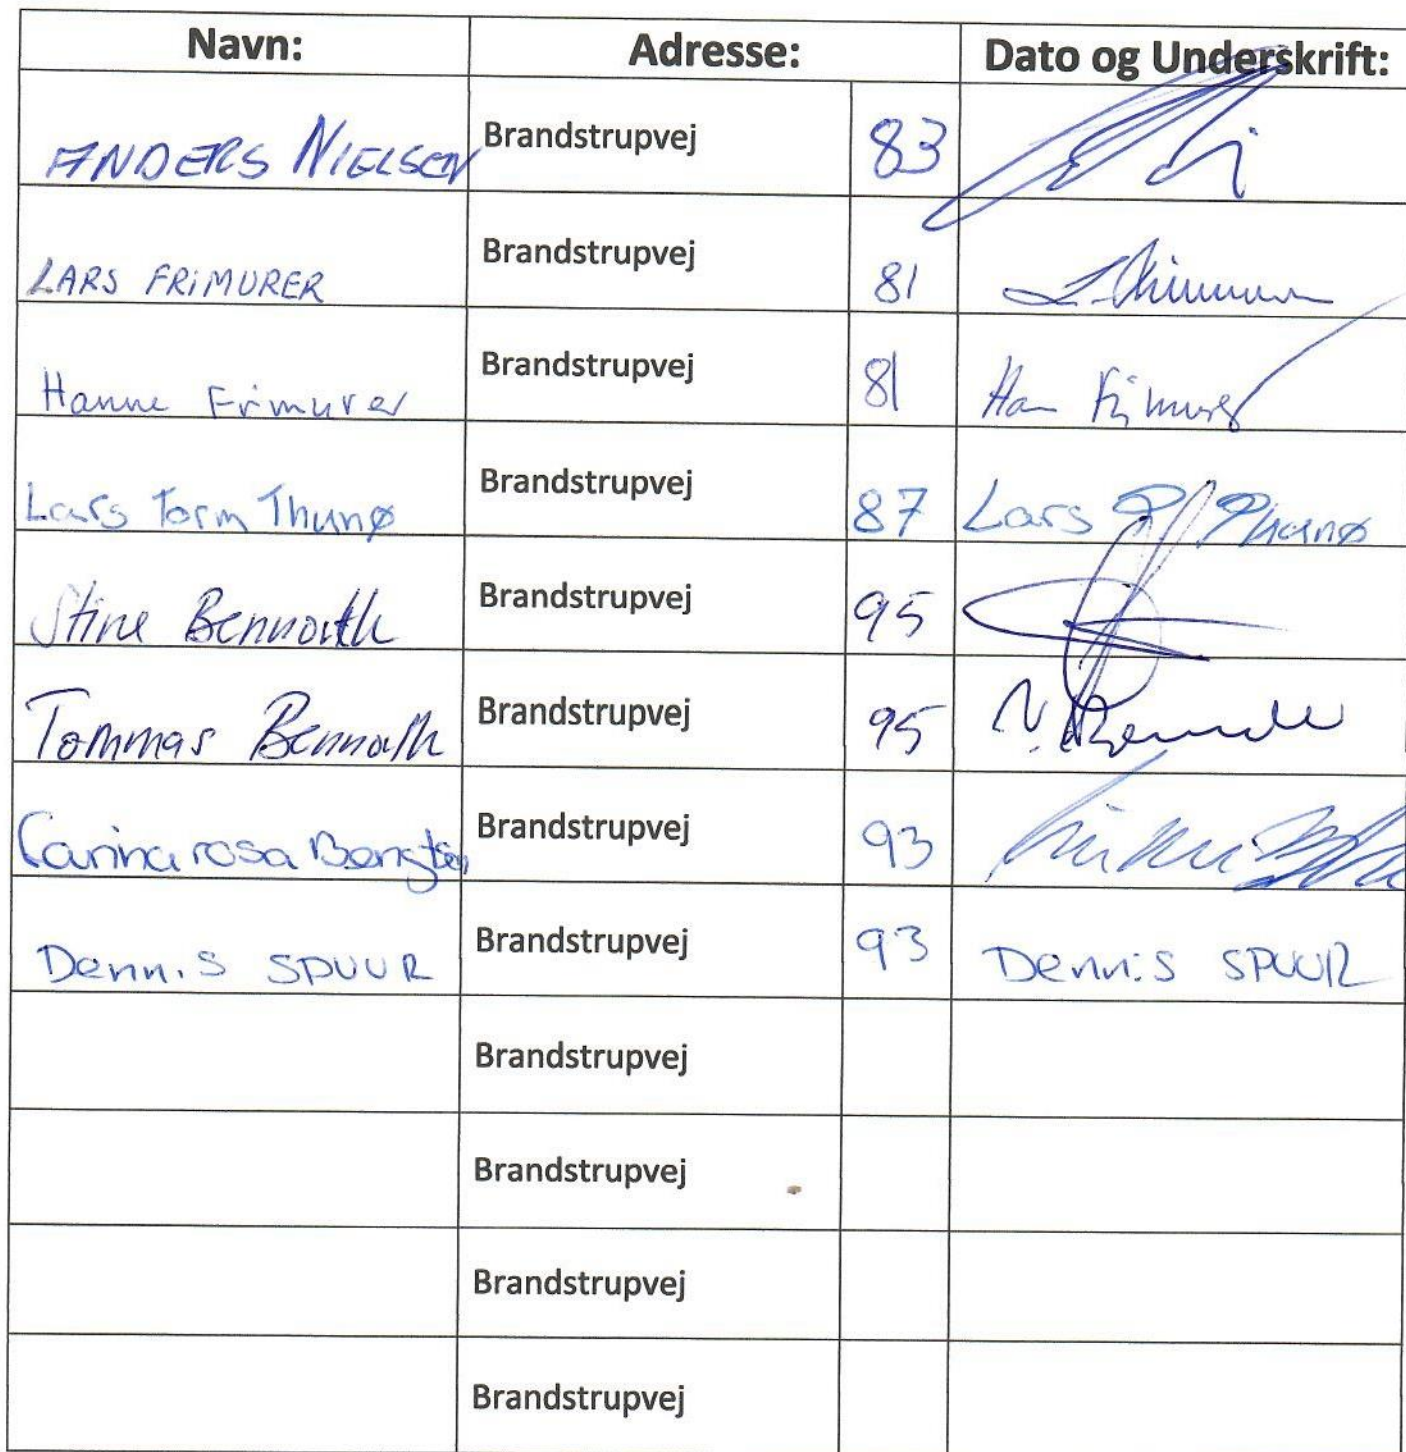 Navn: Adresse: Dato og Underskrift:
ANDERS NIELSEN Brandstrupvej 83
LARS FRIMURER Brandstrupvej 81
Hanne Frimurer Brandstrupvej 81 Frimurer
Lars Torm Thunø Brandstrupvej 87 Lars Thunø
Stine Bennoath Brandstrupvej 95
Tommas Brandstrupvej 95
Carina rosa Brandstrupvej 93
Dennis SPUUR Brandstrupvej 93 Dennis SPUUR
Brandstrupvej
Brandstrupvej
Brandstrupvej
Brandstrupvej